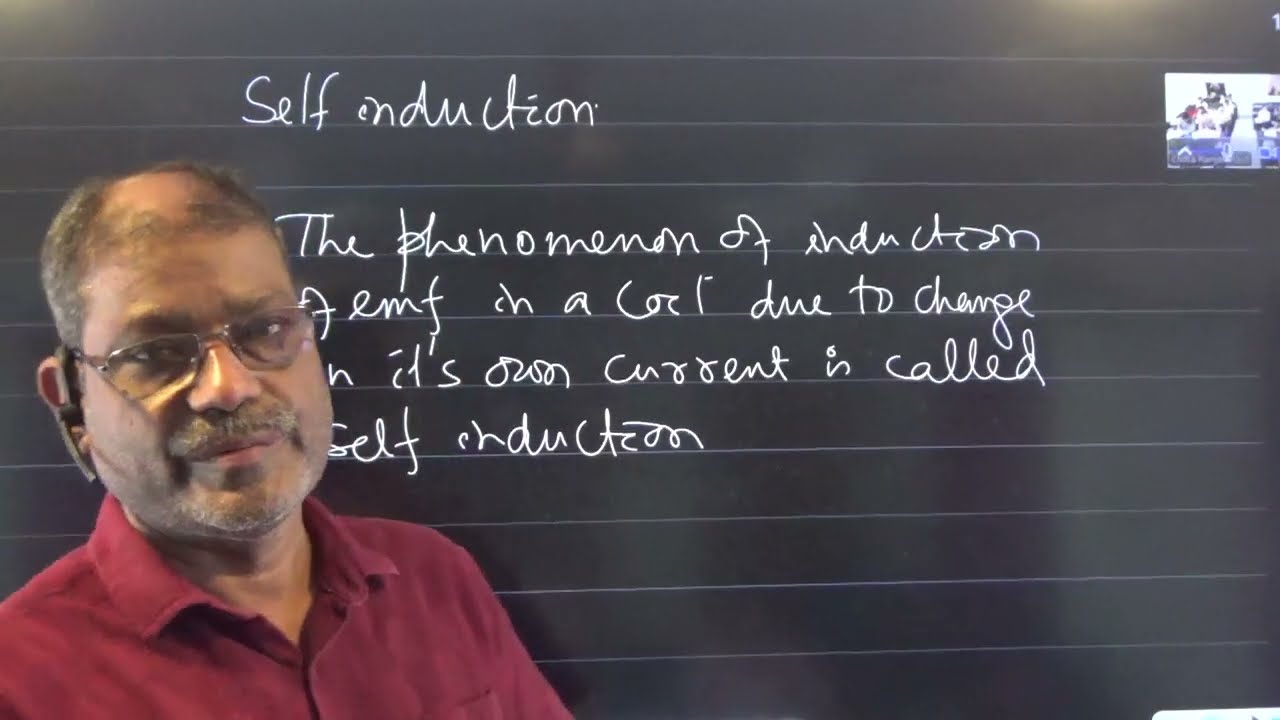 Self induction
The phenomenon of induction
of emf in a coil due to change
in it's own current is called
self induction
1